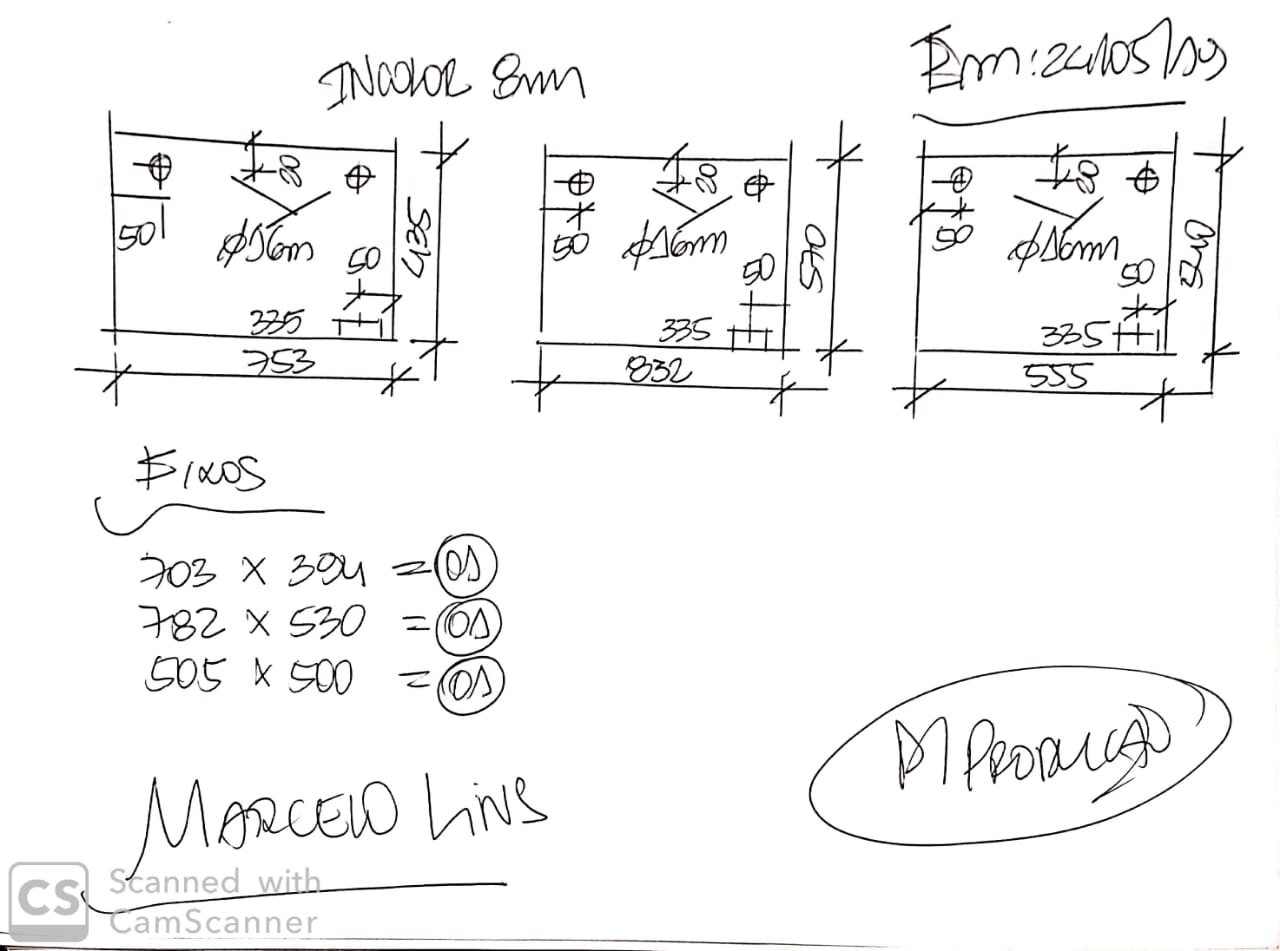 INCOLOR 8mm
Em: 24/05/19
20
50
Ø16m
50
435
335
753
20
50
Ø16mm
50
570
335
832
20
50
Ø16mm
50
540
335
555
FIXOS
703 X 394 = 01
782 X 530 = 01
505 X 500 = 01
P/ PRODUÇÃO
MARCELO LINS
CS Scanned with
CamScanner